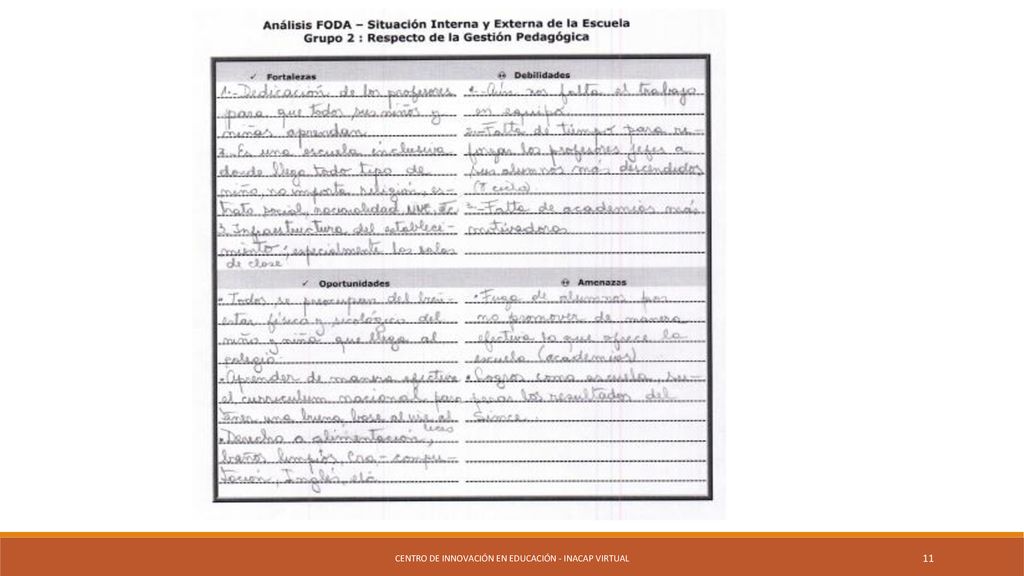 Análisis FODA – Situación Interna y Externa de la Escuela
Grupo 2 : Respecto de la Gestión Pedagógica
✓ Fortalezas
1.- Dedicación de los profesores
para que todos sus niños y
niñas aprendan.
2. Es una escuela inclusiva
donde llega todo tipo de
niño, no importa religión, es-
trato social, nacionalidad, NEE, etc
3. Infraestructura del estableci-
miento; especialmente las salas
de clase.
Debilidades
1.- Aún nos falta el trabajo
en equipo.
2.- Falta de tiempo para re-
forzar los profesores jefes a
sus alumnos más descendidos
ciclo).
3.- Falta de academias más
motivadoras
✓ Oportunidades
• Todos se preocupan del bien-
estar físico y sicológico del
niño y niña que llega al
colegio.
• Aprender de manera efectiva
el curriculum nacional para
tener una buena base al irse al
liceo
• Derecho a alimentación,
baños limpios, Cra, compu-
tación, Inglés, etc.
Amenazas
• Fuga de alumnos por
no promover de manera
efectiva lo que ofrece la
escuela (academias)
• Lograr como escuela su-
perar los resultados del
Simce.
CENTRO DE INNOVACIÓN EN EDUCACIÓN - INACAP VIRTUAL
11